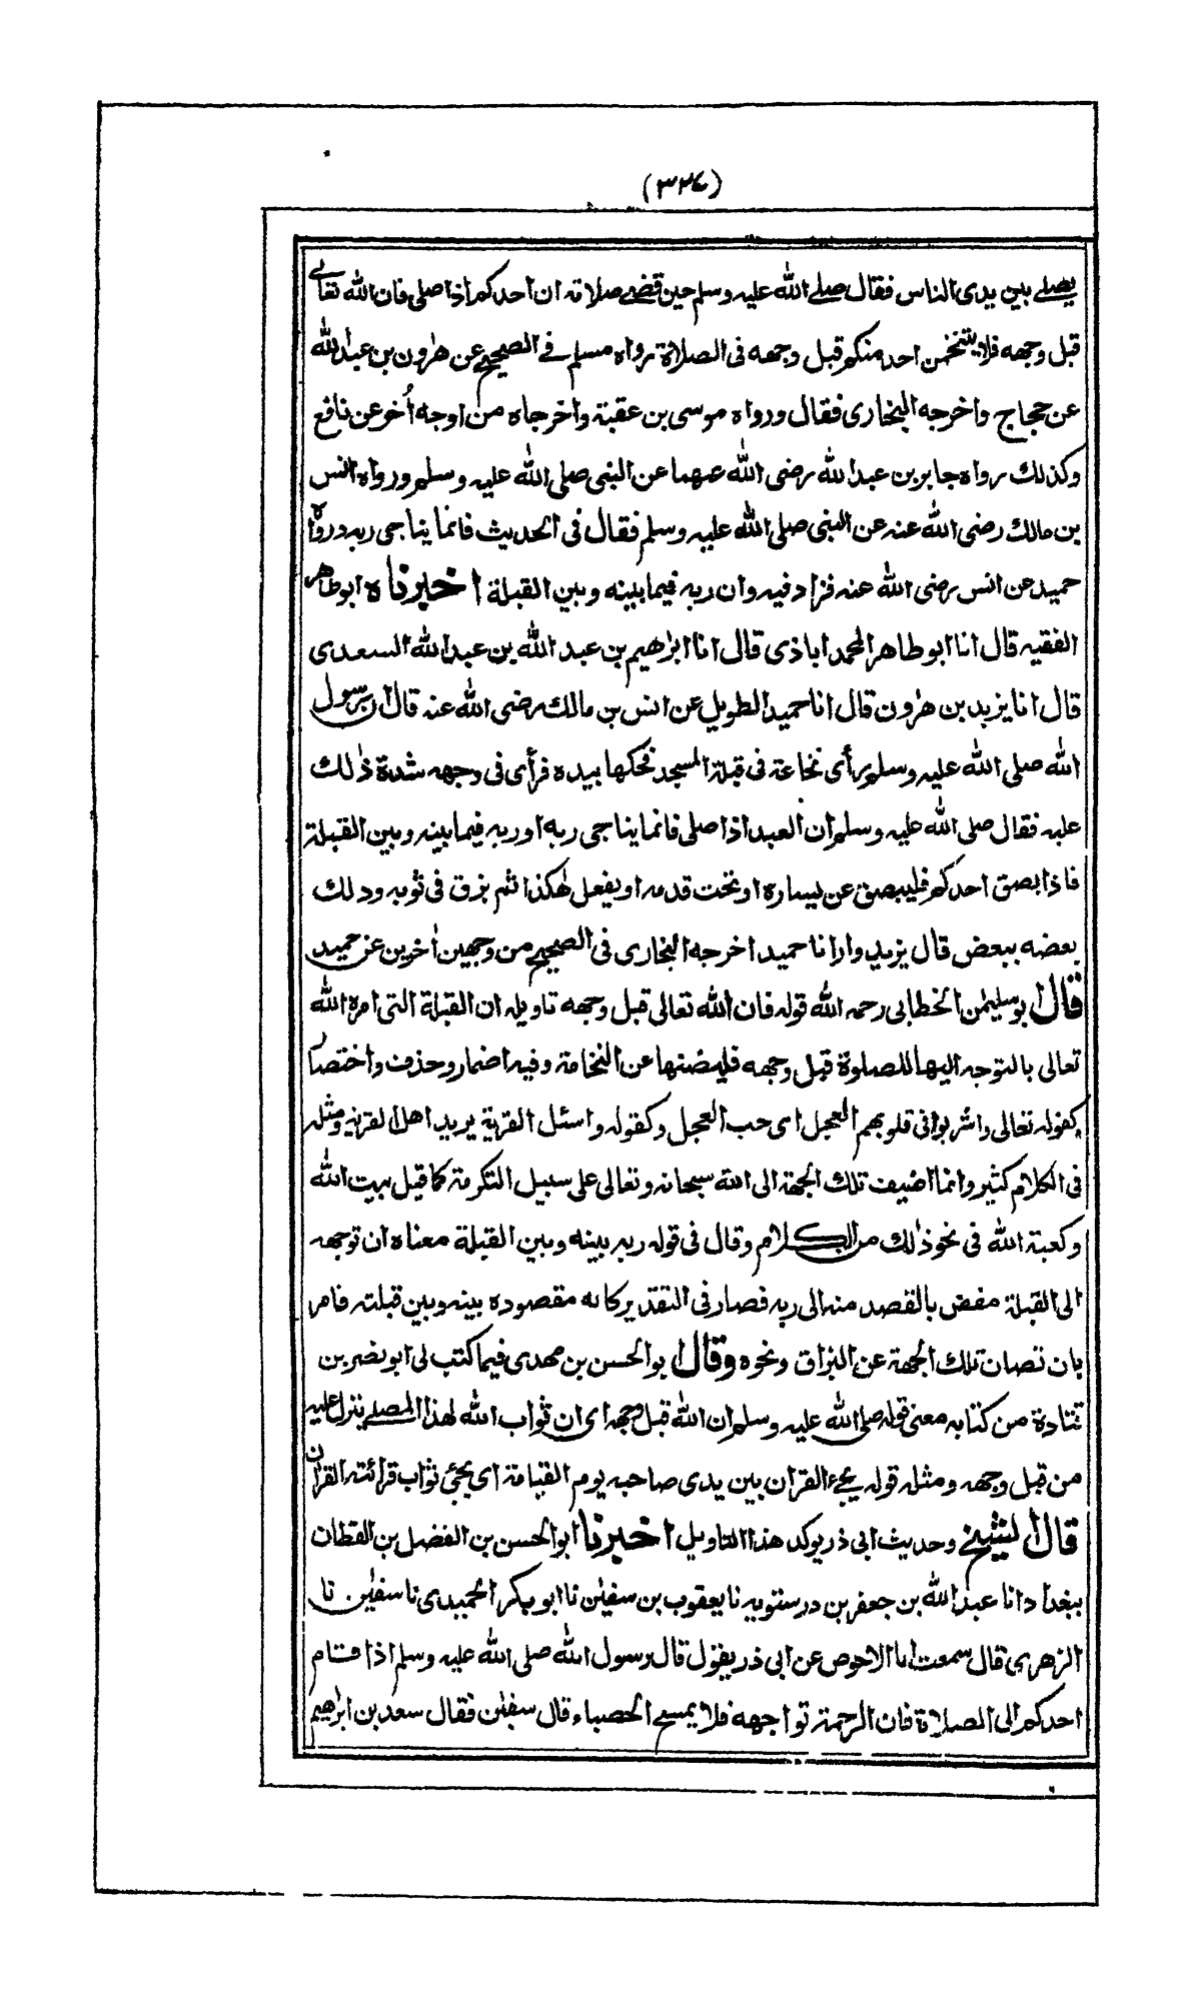 (٣٢٧)
يصلے بين يدى الناس فقال صلے الله عليه وسلم حين قضے صلاته ان احدكم اذا صلى فان الله تعالے
قبل وجهه فلا يتنخمن احد منكم قبل وجهه فى الصلاة رواه مسلم فے الصحيح عن هٰرون بن عبد الله
عن حجاج واخرجه البخارى فقال ورواه موسى بن عقبة واخرجاه من اوجه أُخر عن نافع
وكذلك رواه جابر بن عبد الله رضى الله عنهما عن النبى صلى الله عليه وسلم ورواه انس
بن مالك رضى الله عنه عن النبى صلى الله عليه وسلم فقال فى الحديث فانما يناجى ربه ورواه
حميد عن انس رضى الله عنه فزاد فيه وان ربه فيما بينه وبين القبلة اخبرناه ابو طاهر
الفقيه قال انا ابو طاهر المحمد اباذى قال انا ابرٰهيم بن عبد الله بن عبد الله السعدى
قال انا يزيد بن هٰرون قال انا حميد الطويل عن انس بن مالك رضى الله عنه قال ان رسول
الله صلى الله عليه وسلم رأى نخاعة فى قبلة المسجد فحكها بيده فرأى فى وجهه شدة ذٰلك
عليه فقال صلى الله عليه وسلم ان العبد اذا صلى فانما يناجى ربه او ربه فيما بينه وبين القبلة
فاذا بصق احدكم فليبصق عن يساره او تحت قدمه او يفعل هٰكذا ثم بزق فى ثوبه ودلك
بعضه ببعض قال يزيد وارانا حميد اخرجه البخارى فى الصحيح من وجهين اٰخرين عن حميد
قال ابو سليمٰن الخطابى رحمه الله قوله فان الله تعالى قبل وجهه تاويله ان القبلة التى امره الله
تعالى بالتوجه اليها للصلوة قبل وجهه فليصنها عن النخامة وفيه اضمار وحذف واختصار
كقوله تعالى واشربوا فى قلوبهم العجل اى حب العجل وكقوله واسئل القرية يريد اهل القرية ومثله
فى الكلام كثير وانما اضيف تلك الجهة الى الله سبحانه وتعالى على سبيل التكرمة كما قيل بيت الله
وكعبة الله فى نحو ذٰلك من الكلام وقال فى قوله ربه بينه وبين القبلة معناه ان توجهه
الى القبلة مفض بالقصد منه الى ربه فصار فى التقدير كانه مقصوده بينه وبين قبلته فامر
بان تصان تلك الجهة عن البزاق ونحوه وقال ابو الحسن بن مهدى فيما كتب لى ابو نصر بن
قتادة من كتابه معنى قوله صلى الله عليه وسلم ان الله قبل وجهه اى ان ثواب الله لهذا المصلے ينزل عليه
من قبل وجهه ومثله قوله يجئ القران بين يدى صاحبه يوم القيامة اى يجئ ثواب قرائته القران
قال الشيخ وحديث ابى ذر يوكد هذا التاويل اخبرنا ابو الحسن بن الفضل بن القطان
ببغداد انا عبد الله بن جعفر بن درستويه نا يعقوب بن سفيٰن نا ابو بكر الحميدى نا سفيٰن نا
الزهرى قال سمعت ابا الاحوص عن ابى ذر يقول قال رسول الله صلى الله عليه وسلم اذا قام
احدكم الى الصلاة فان الرحمة تواجهه فلا يمسح الحصباء قال سفيٰن فقال سعد بن ابرٰهيم